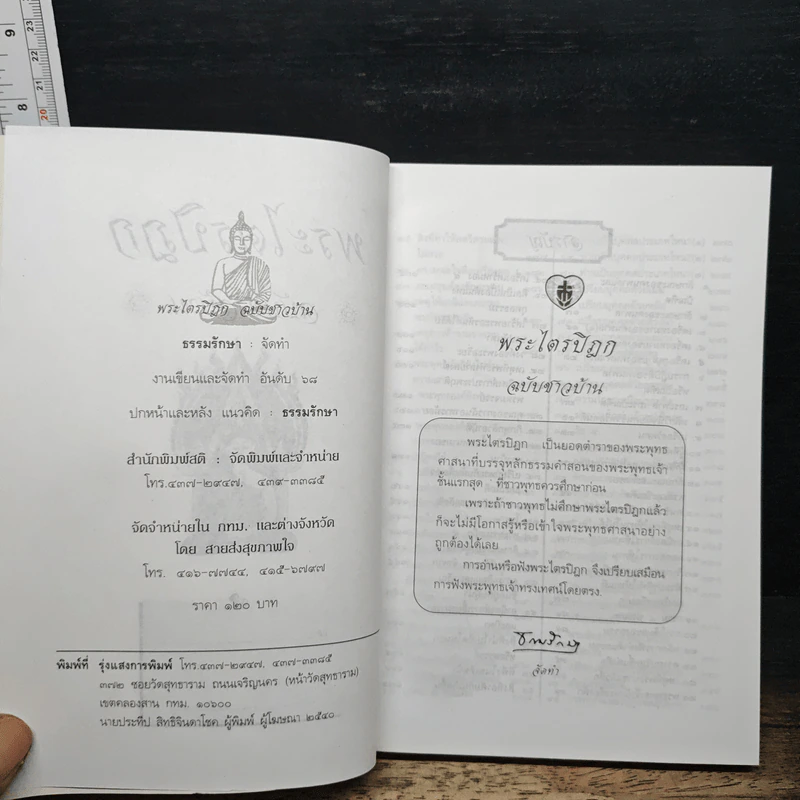 พระไตรปิฎก ฉบับชาวบ้าน
ธรรมรักษา : จัดทำ
งานเขียนและจัดทำ อันดับ ๖๘
ปกหน้าและหลัง แนวคิด : ธรรมรักษา
สำนักพิมพ์สติ : จัดพิมพ์และจำหน่าย
โทร.๔๓๗-๒๙๔๗, ๔๓๙-๓๓๘๕
จัดจำหน่ายใน กทม. และต่างจังหวัด
โดย สายส่งสุขภาพใจ
โทร. ๔๑๖-๗๗๔๔, ๔๑๕-๖๗๙๗
ราคา ๑๒๐ บาท
พิมพ์ที่ รุ่งแสงการพิมพ์ โทร.๔๓๗-๒๙๔๗, ๔๓๗-๓๓๘๕
๓๗๒ ซอยวัดสุทธาราม ถนนเจริญนคร (หน้าวัดสุทธาราม)
เขตคลองสาน กทม. ๑๐๖๐๐
นายประทีป สิทธิจินดาโชค ผู้พิมพ์ ผู้โฆษณา ๒๕๔๐
พระไตรปิฎก
ฉบับชาวบ้าน
พระไตรปิฎก เป็นยอดตำราของพระพุทธ
ศาสนาที่บรรจุหลักธรรมคำสอนของพระพุทธเจ้า
ชั้นแรกสุด ที่ชาวพุทธควรศึกษาก่อน
เพราะถ้าชาวพุทธไม่ศึกษาพระไตรปิฎกแล้ว
ก็จะไม่มีโอกาสรู้หรือเข้าใจพระพุทธศาสนาอย่าง
ถูกต้องได้เลย
การอ่านหรือฟังพระไตรปิฎก จึงเปรียบเสมือน
การฟังพระพุทธเจ้าทรงเทศน์โดยตรง.
จัดทำ
9
8
23
22
21
20